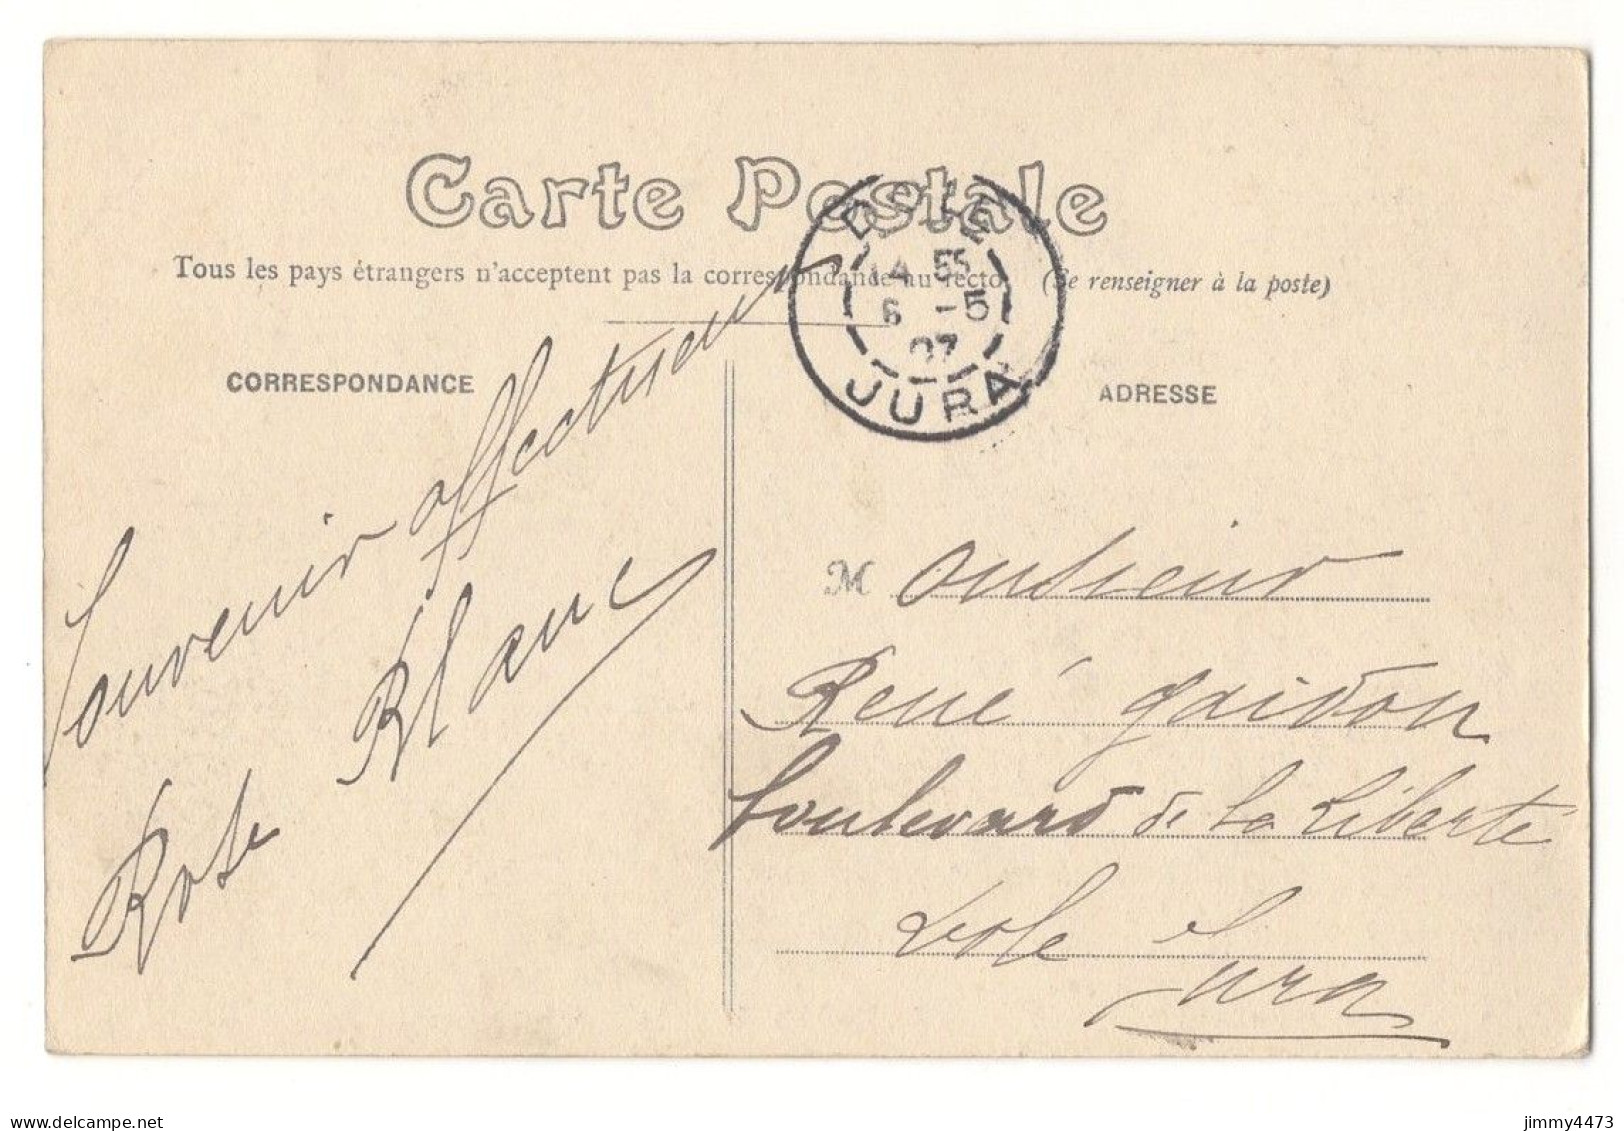 Carte Postale
Tous les pays étrangers n'acceptent pas la correspondance au recto (Se renseigner à la poste)
DOLE
14 55
6 -5
07
JURA
CORRESPONDANCE
ADRESSE
Souvenir affectueux
Rose Blanc
Monsieur
René Gaidon
boulevard de la Liberté
Dole
Jura
delcampe.net
jimmy4473